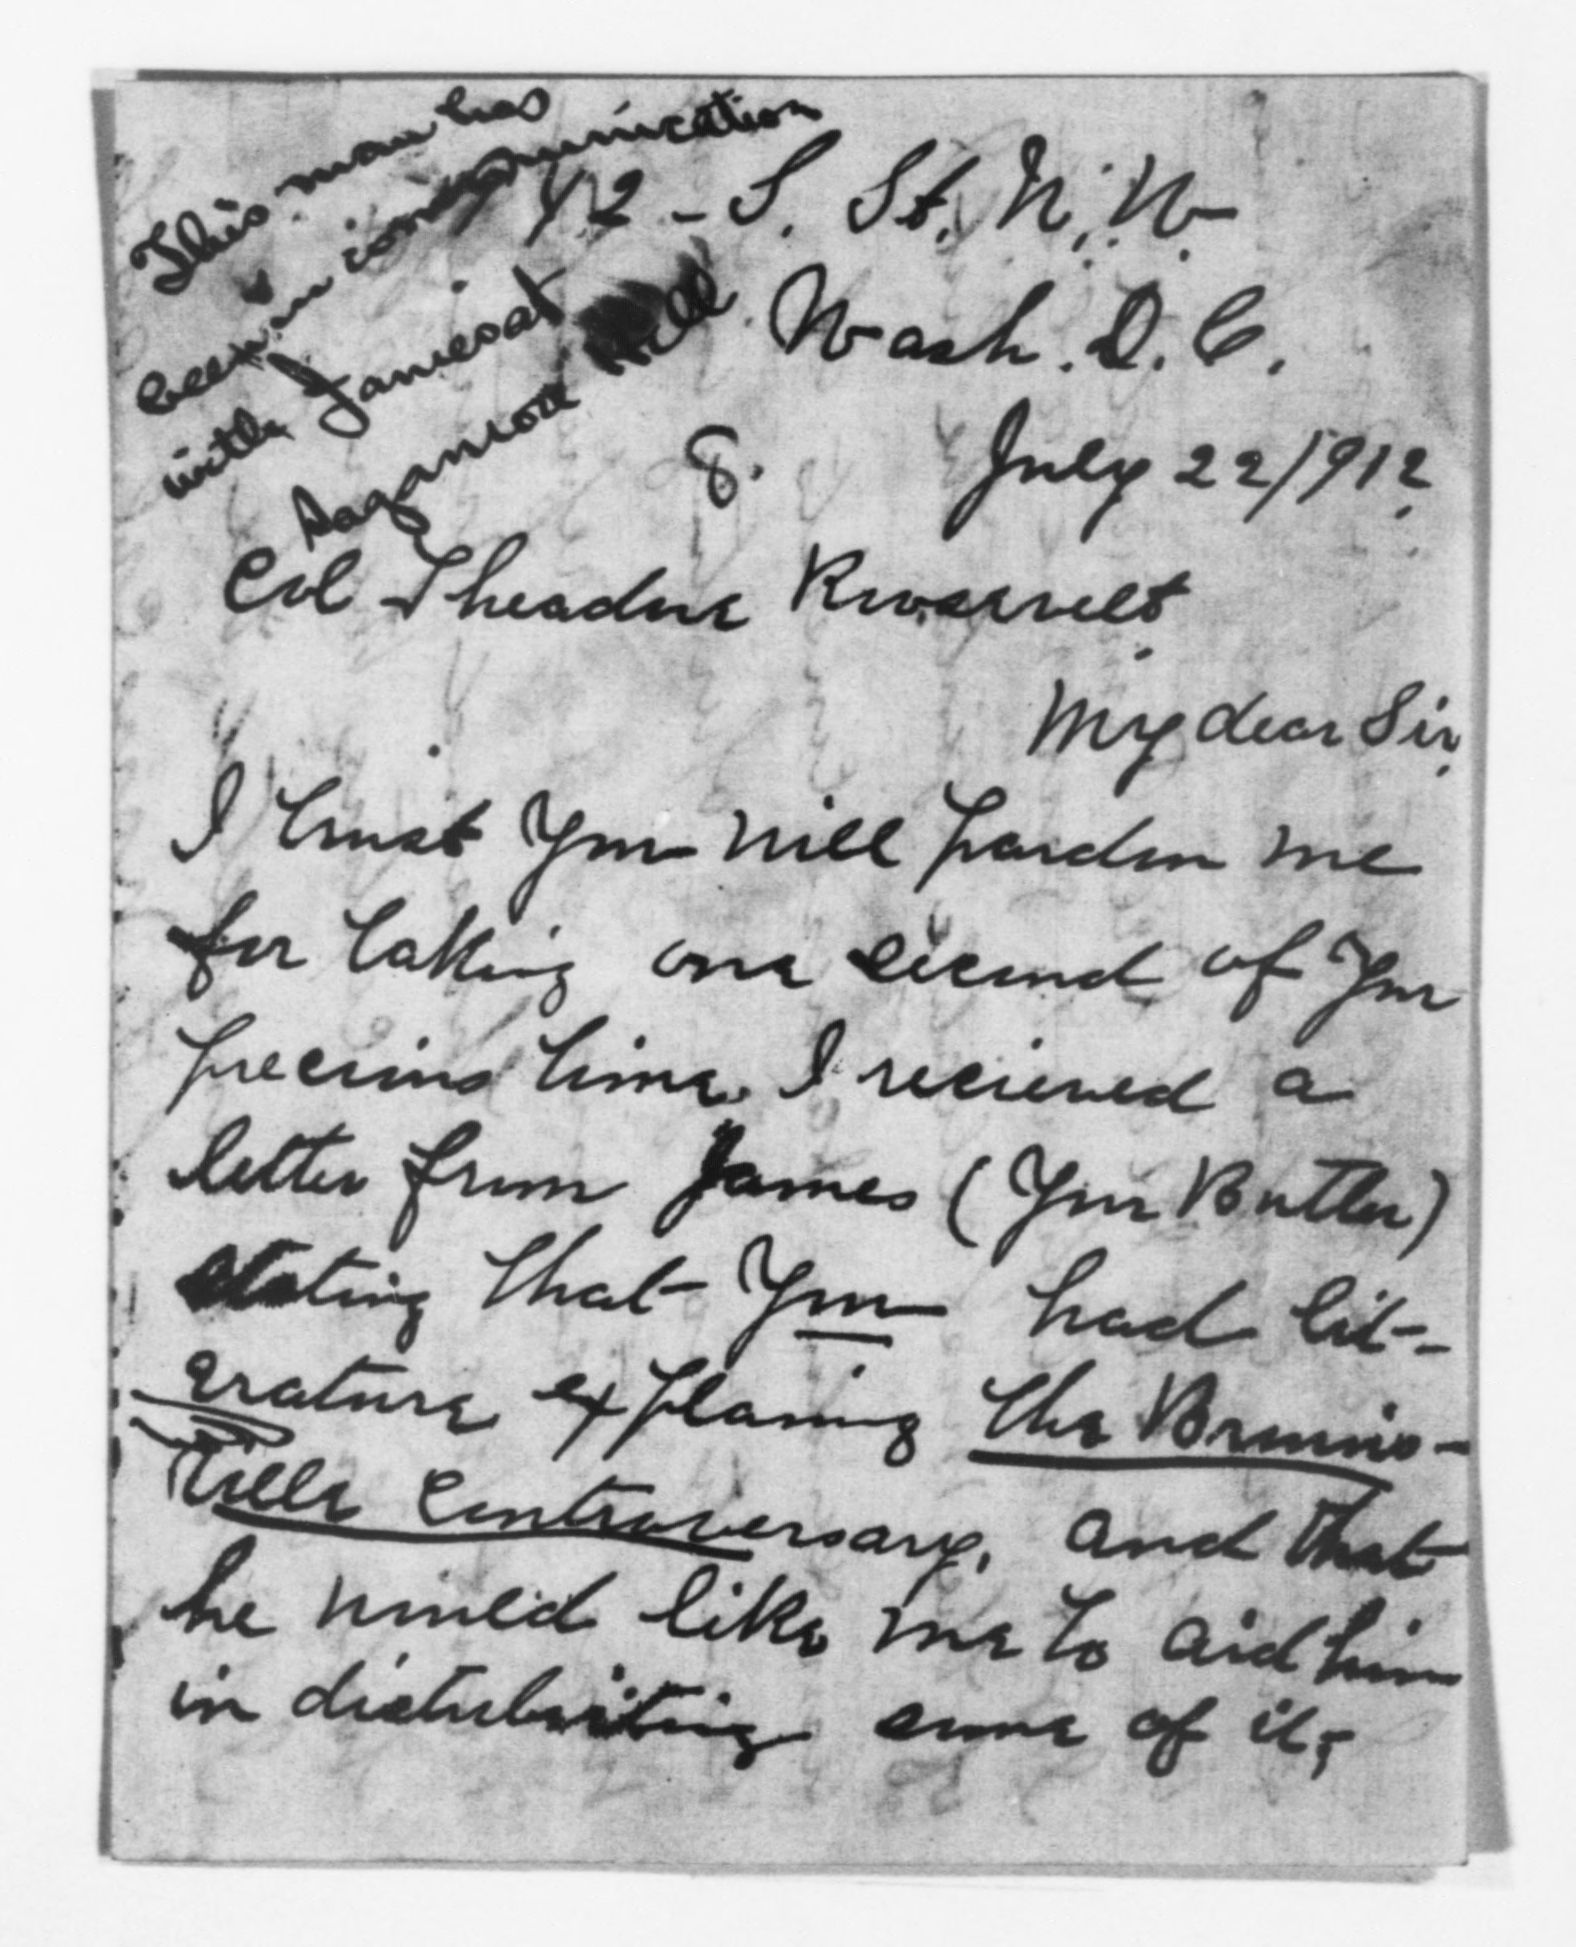 This man has
been in communication
with James at
Sagamore Hill
42 - S. St. N. W.
Wash. D. C.
8. July 22/912
Col Theadore Roosevelt
My dear Sir,
I trust You will pardon me
for taking one second of Your
precious time. I recieved a
letter from James (Your Butler)
stating that You had lit-
erature explaning the Browns-
ville Controversary, and that
he would like me to aid him
in distubiting some of it,